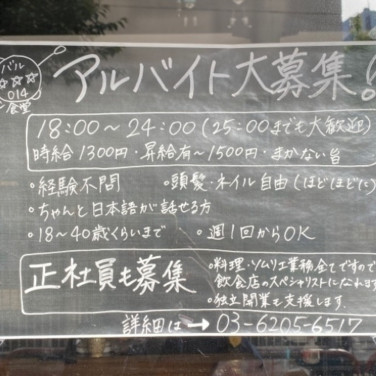 バル
☆☆☆
014
食堂
アルバイト大募集!
18:00～24:00(25:00までも大歓迎)
時給1300円・昇給有～1500円・まかない旨
・経験不問
・頭髪・ネイル自由(ほどほどに)
・ちゃんと日本語が話せる方
・18～40歳くらいまで
・週1回からOK
正社員も募集
・料理・ソムリエ業務全てですので
飲食店のスペシャリストになれます
・独立開業も支援します。
詳細は→03-6205-6517